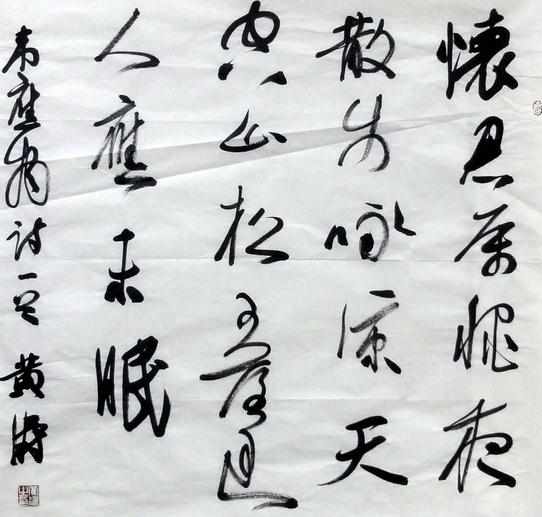 懷君屬秋夜
散步詠涼天
空山松子落幽
人應未眠
韋應物詩一首 黃